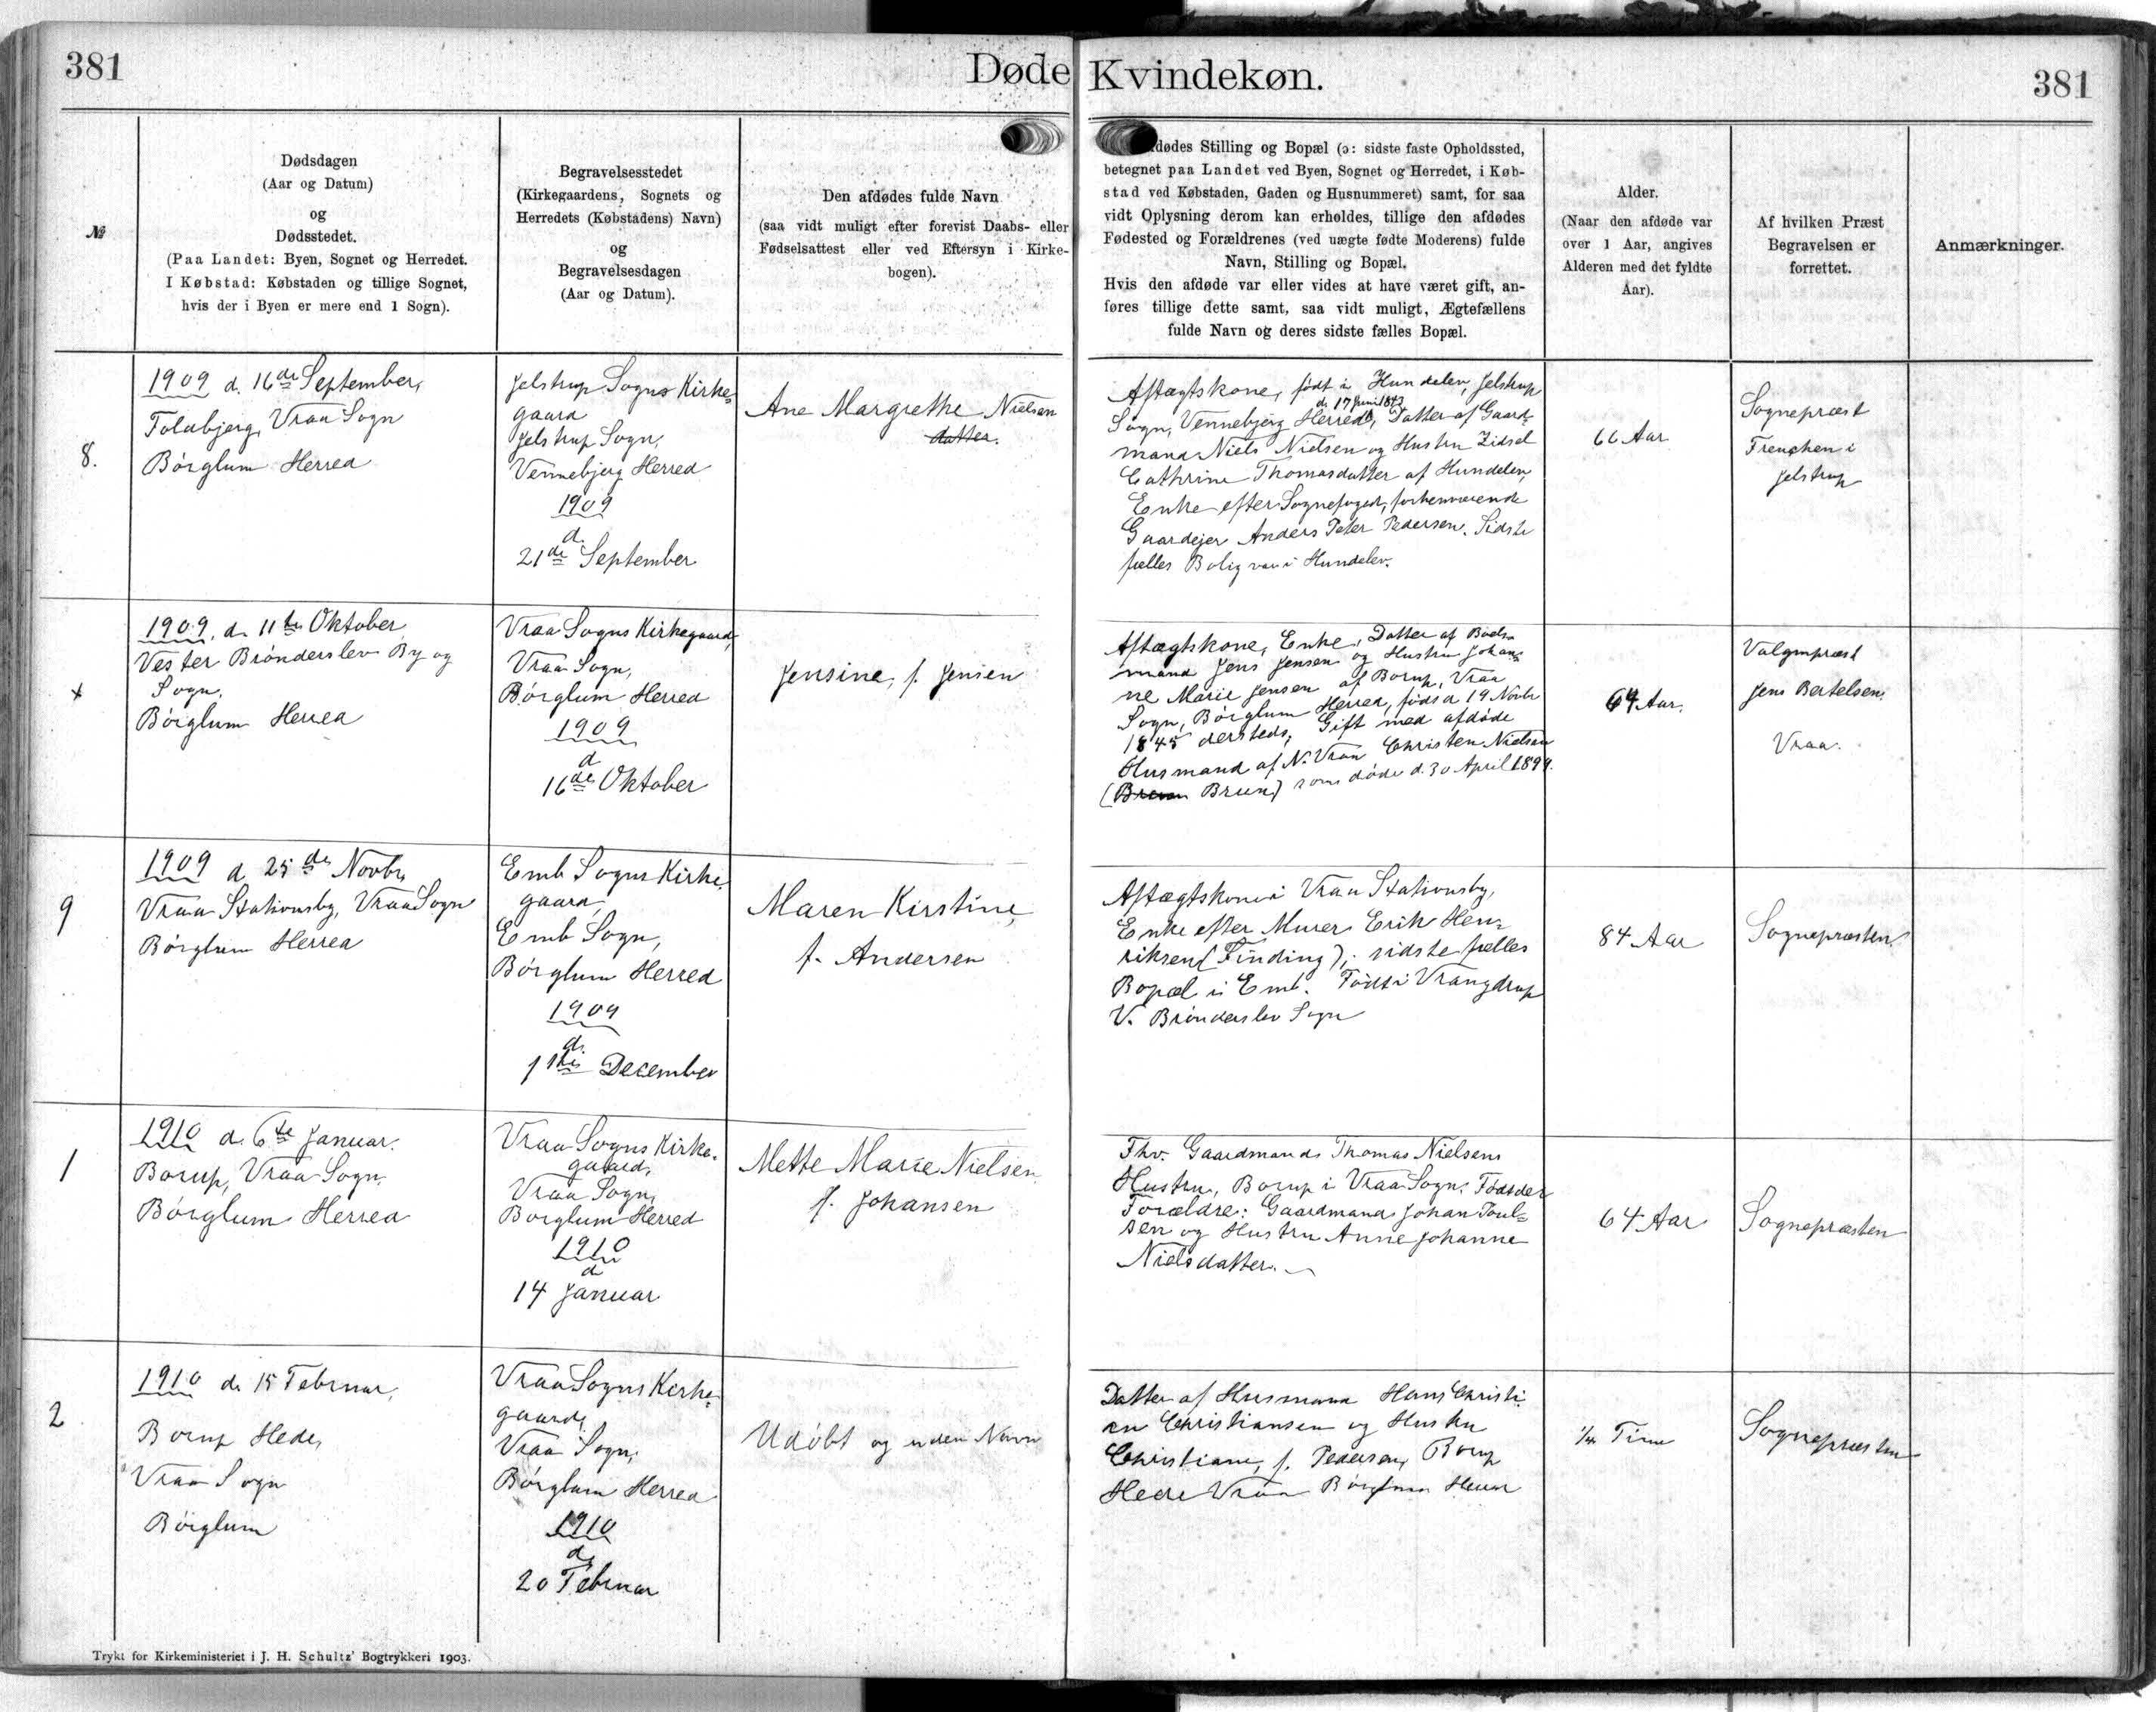 381
Døde Kvindekøn.
381
№
Dødsdagen
(Aar og Datum)
og
Dødsstedet.
(Paa Landet: Byen, Sognet og Herredet.
I Købstad: Købstaden og tillige Sognet,
hvis der i Byen er mere end 1 Sogn).
Begravelsesstedet
(Kirkegaardens, Sognets og
Herredets (Købstadens) Navn)
og
Begravelsesdagen
(Aar og Datum).
Den afdødes fulde Navn
(saa vidt muligt efter forevist Daabs- eller
Fødselsattest eller ved Eftersyn i Kirke-
bogen).
dødes Stilling og Bopæl (ɔ: sidste faste Opholdssted,
betegnet paa Landet ved Byen, Sognet og Herredet, i Køb-
stad ved Købstaden, Gaden og Husnummeret) samt, for saa
vidt Oplysning derom kan erholdes, tillige den afdødes
Fødested og Forældrenes (ved uægte fødte Moderens) fulde
Navn, Stilling og Bopæl.
Hvis den afdøde var eller vides at have været gift, an-
føres tillige dette samt, saa vidt muligt, Ægtefællens
fulde Navn og deres sidste fælles Bopæl.
Alder.
(Naar den afdøde var
over 1 Aar, angives
Alderen med det fyldte
Aar).
Af hvilken Præst
Begravelsen er
forrettet.
Anmærkninger.
8.
1909 d. 16de September,
Folabjerg, Vraa Sogn
Börglum Herred
Jelstrup Sogns Kirke-
gaard
Jelstrup Sogn,
Vennebjerg Herred
1909
d.
21de September
Ane Margrethe Nielsen
datter.
Aftægtskone, født i Hundelev, Jelstrup
d. 17 Juni 1843
Sogn, Vennebjerg Herred, Datter af Gaard-
mand Niels Nielsen og Hustru Zidsel
Cathrine Thomasdatter af Hundelev,
Enke efter Sognefoged, forhenværende
Gaardejer Anders Peter Pedersen. Sidste
fælles Bolig var i Hundelev.
66 Aar
Sognepræst
Frenchen i
Jelstrup
x
1909, d. 11te Oktober
Vester Brönderslev By og
Sogn,
Börglum Herred
Vraa Sogns Kirkegaard,
Vraa Sogn,
Börglum Herred
1909
d
16de Oktober
Jensine, f. Jensen
Aftægtskone, Enke, Datter af Bøds-
mand Jens Jensen og Hustru Johan-
ne Marie Jensen af Borup, Vraa
Sogn, Börglum Herred, født d 19 Novbr
1845 dersteds, Gift med afdöde
Husmand af N. Vraa Christen Nielsen
(Bruun Bruun) som döde d. 30 April 1899.
64 Aar.
Valgmpræst
Jens Bertelsen
Vraa.
9
1909 d 25de Novbr,
Vraa Stationsby, Vraa Sogn
Börglum Herred
Emb Sogns Kirke-
gaard,
Emb Sogn,
Börglum Herred
1909
d.
1ste December
Maren Kirstine,
f. Andersen
Aftægtskone i Vraa Stationsby,
Enke efter Murer Erik Hen-
riksen (Finding), sidste fælles
Bopæl i Emb. Født i Vrangdrup
V. Brönderslev Sogn
84 Aar
Sognepræsten.
1
1910 d. 6te Januar.
Borup, Vraa Sogn.
Börglum Herred
Vraa Sogns Kirke-
gaard,
Vraa Sogn,
Borglum Herred
1910
d
14 Januar
Mette Marie Nielsen
f. Johansen
Fhv. Gaardmands Thomas Nielsens
Hustru, Borup i Vraa Sogn. Født der
Forældre: Gaardmand Johan Poul-
sen og Hustru Anne Johanne
Nielsdatter.
64 Aar
Sognepræsten
2
1910 d. 15 Februar,
Borup Hede,
Vraa Sogn
Börglum
Vraa Sogns Kirke-
gaard,
Vraa Sogn,
Börglum Herred
1910
d.
20 Februar
Udöbt og uden Navn
Datter af Husmand Hans Christi-
an Christiansen og Hustru
Christiane, f. Pedersen, Borup
Hede Vraa Börglum Herred
1/4 Time
Sognepræsten
Trykt for Kirkeministeriet i J. H. Schultz' Bogtrykkeri 1903.